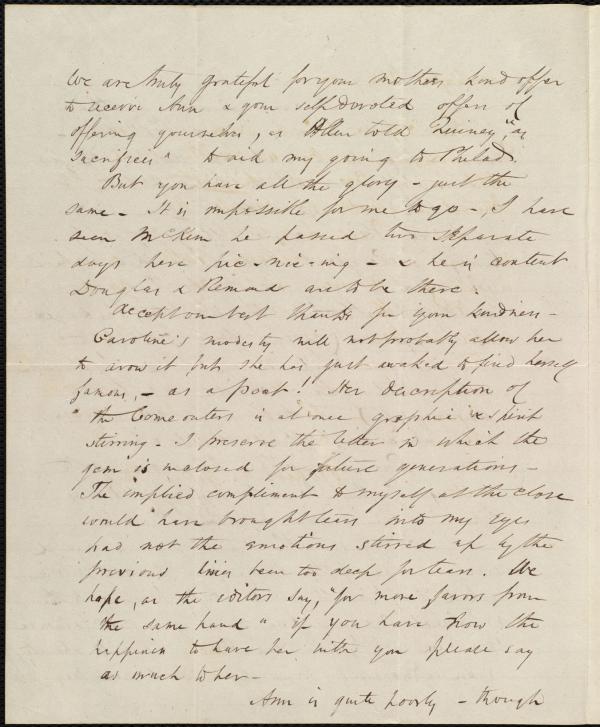 We are truly grateful for your mothers kind offer
to receive Ann & your self devoted offers of
offering yourselves, as Allen told Quincy, "as
sacrifices" to aid my going to Philad.
But you have all the glory - just the
same - It is impossible for me to go -, I have
seen McKim he passed two separate
days here pic-nic-ing - & he is content
Douglas & Remond are to be there.
Accept our best thanks for your kindness -
Caroline's modesty will not probably allow her
to avow it but she has just awaked to find herself
famous, - as a poat! Her description of
"the Comeouters is at once graphic & spirit
stirring - I preserve the letter in which the
gem is inclosed for future generations -
The implied compliment to myself at the close
would have brought tears into my eyes
had not the emotions stirred up by the
previous lines been too deep for tears. We
hope, as the editors say, "for more favors from
the same hand" if you have now the
happiness to have her with you please say
as much to her -
Ann is quite poorly - though